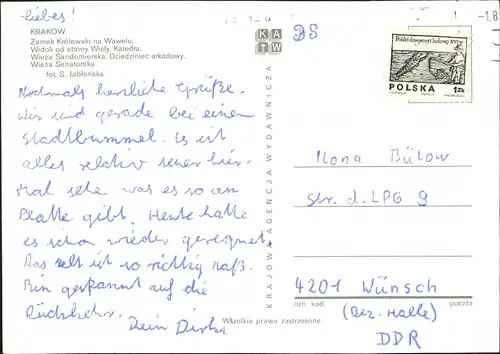 liebes!
KRAKÓW
Zamek Królewski na Wawelu.
Widok od strony Wisły. Katedra.
Wieża Sandomierska. Dziedziniec arkadowy.
Wieża Senatorska
fot. S. Jabłońska
Nochmals herzliche Grüße.
Wir sind gerade bei einem
Stadtbummel. Es ist
alles relativ teuer hier.
Mal sehn was es so an
Platte gibt. Heute hatte
es schon wieder geregnet.
Das Zelt ist so richtig naß.
Bin gespannt auf die
Rückkehr.
Dein Dirk
KAW
KRAJOWA AGENCJA WYDAWNICZA
Wszelkie prawa zastrzeżone
POLSKA
1 ZŁ
Ilona Bülow
Str. d. LPG 9
4201 Wünsch
ozn. kod
poczta
(Bez. Halle)
DDR